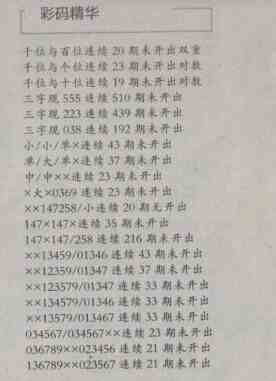 彩码精华
千位与百位连续 20 期未开出双重
千位与个位连续 23 期未开出对数
千位与十位连续 19 期未开出对数
三字现 555 连续 510 期未开出
三字现 223 连续 439 期未开出
三字现 038 连续 192 期未开出
小/小/单×连续 43 期未开出
单/大/单×连续 37 期未开出
中/中××连续 23 期未开出
×大×0369 连续 23 期未开出
××147258/小连续 20 期无开出
147×147×连续 35 期未开出
147×147/258 连续 216 期未开出
××13459/01346 连续 43 期未开出
××12359/01347 连续 37 期未开出
××123579/01347 连续 33 期未开出
××134579/01346 连续 33 期未开出
××13579/013467 连续 33 期未开出
034567/034567××连续 23 期未开出
036789××023456 连续 21 期未开出
136789××023567 连续 21 期未开出